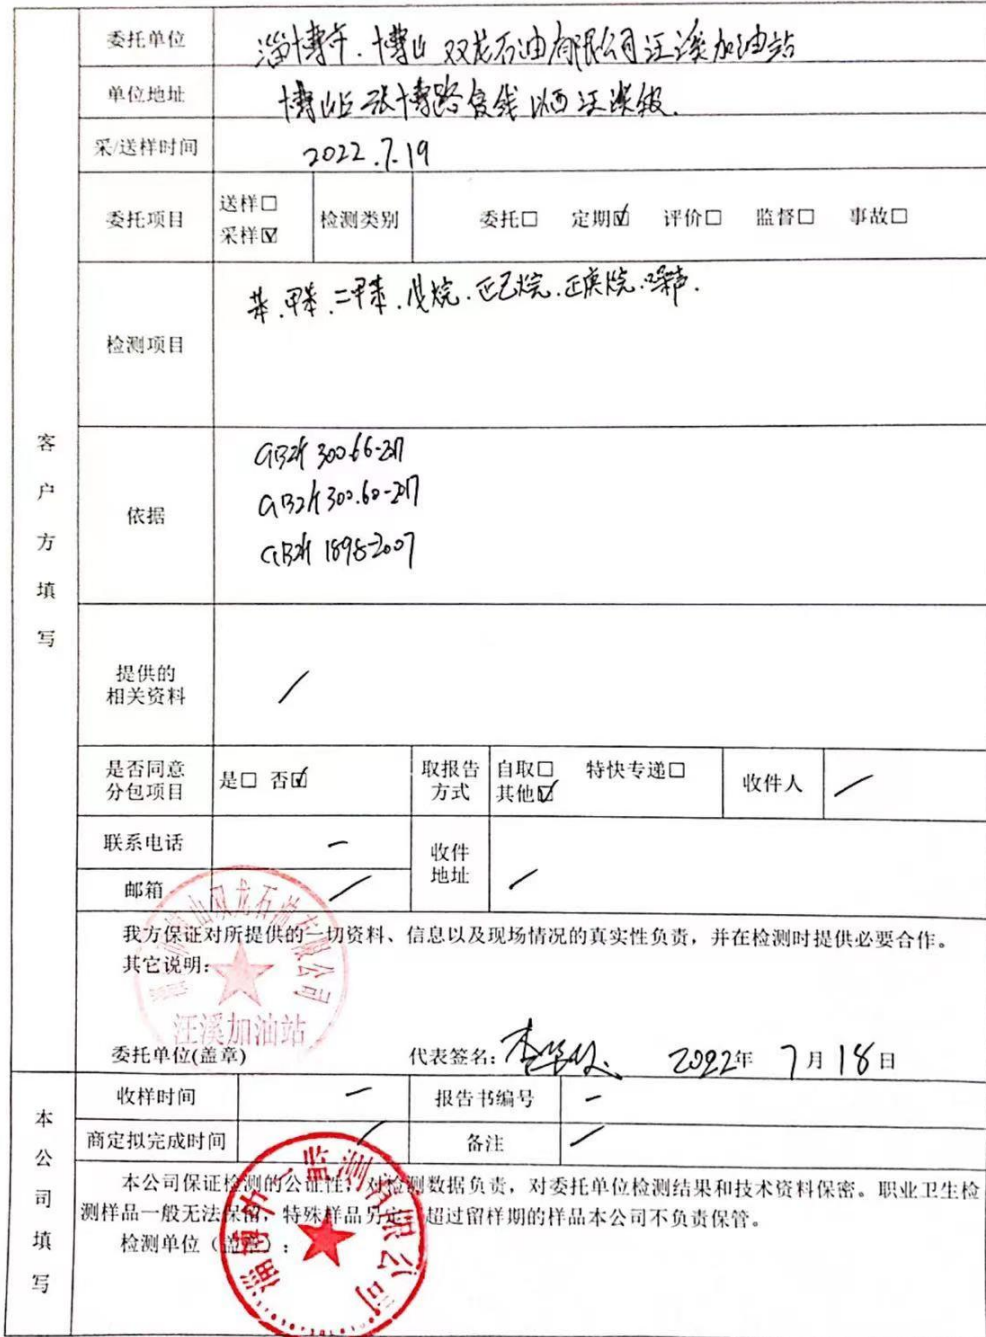 委托单位 淄博市博山双龙石油有限公司汪溪加油站
单位地址 博山区张博路复线以西汪溪
采/送样时间 2022.7.19
委托项目 送样□ 检测类别 委托□ 定期☑ 评价□ 监督□ 事故□
采样☑
检测项目 苯.甲苯.二甲苯.戊烷.正己烷.正庚烷.噪声.
客户方填写
依据 GBZ/T 300.66-2017
GBZ/T 300.60-2017
GBZ/T 189.8-2007
提供的
相关资料 /
是否同意
分包项目 是□ 否☑ 取报告
方式 自取□ 特快专递□
其他☑ 收件人 /
联系电话 — 收件
地址 /
邮箱 /
我方保证对所提供的一切资料、信息以及现场情况的真实性负责，并在检测时提供必要合作。
其它说明：
博山双龙石油有限公司
汪溪加油站
委托单位(盖章) 代表签名： 2022年 7月18日
本公司填写
收样时间 — 报告书编号 —
商定拟完成时间 / 备注 /
本公司保证检测的公证性，对检测数据负责，对委托单位检测结果和技术资料保密。职业卫生检
测样品一般无法保留，特殊样品另定，超过留样期的样品本公司不负责保管。
检测单位（盖章）：
监测有限公司